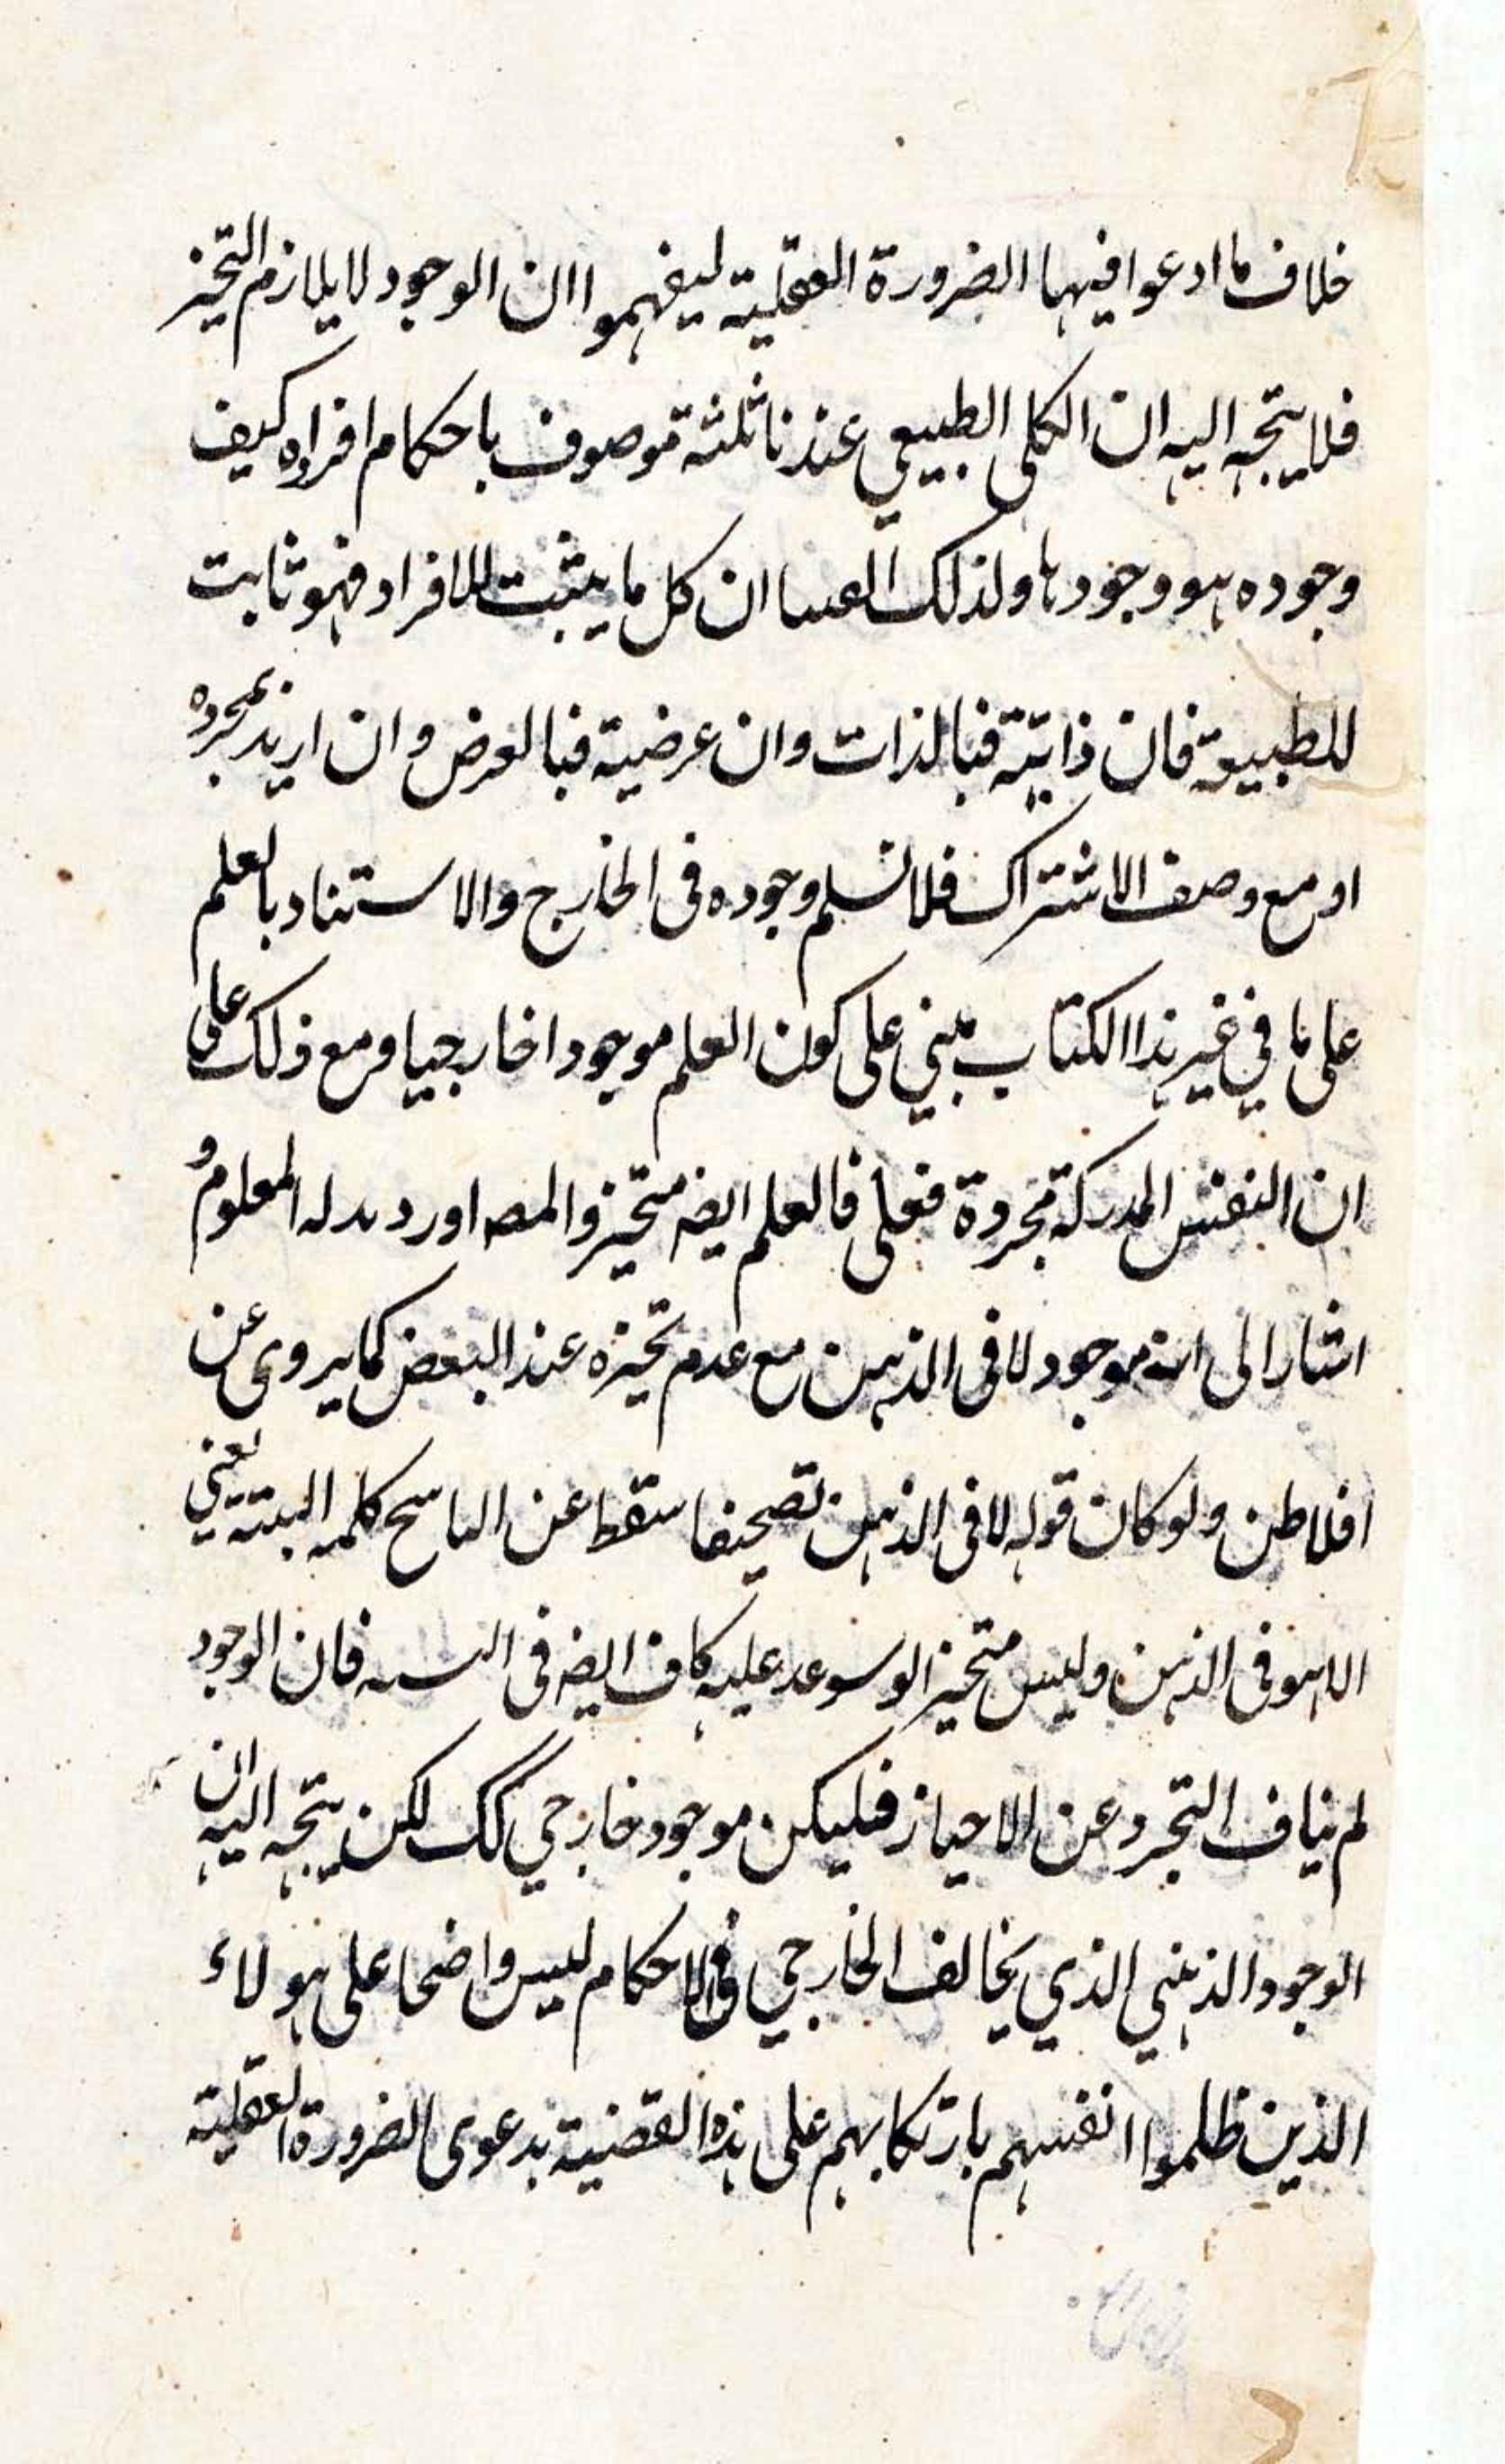 خلاف ما ادعوا فيها الضرورة العقلية ليفهموا ان الوجود لا يلازم التحيز
فلا يتجه اليه ان الكلى الطبيعي عندنا ثلثة موصوف باحكام افراده كيف
وجوده هو وجودها ولذلك ان كل ما يثبت للافراد فهو ثابت
للطبيعة فان ذاتية فبالذات وان عرضية فبالعرض وان اريد بمجرده
او مع وصف الاشتراك فلا نسلم وجوده فى الخارج والاستناد بالعلم
على ما في غير هذا الكتاب مبني على كون العلم موجودا خارجيا ومع ذلك على
ان النفس المدركة مجردة فعلى فالعلم ايضه متحيز والمصه اورد المعلوم و
اشار الى انه موجود لا فى الذهن مع عدم تحيزه عند البعض كما يروى عن
افلاطن ولو كان قوله لا فى الذهن تصحيفا سقط عن الناسخ كلمه البتة يعني
الا هو فى الذهن وليس متحيز عليه كاف ايضه فى فان الوجود
لم يناف التجرد عن الاحياز فليكن موجود خارجي كك لكن يتجه اليه ان
الوجود الذهني الذي يخالف الخارجي فى الاحكام ليس واضحا على هولاء
الذين ظلموا انفسهم بارتكابهم على هذه القضية بدعوى الضرورة العقلية